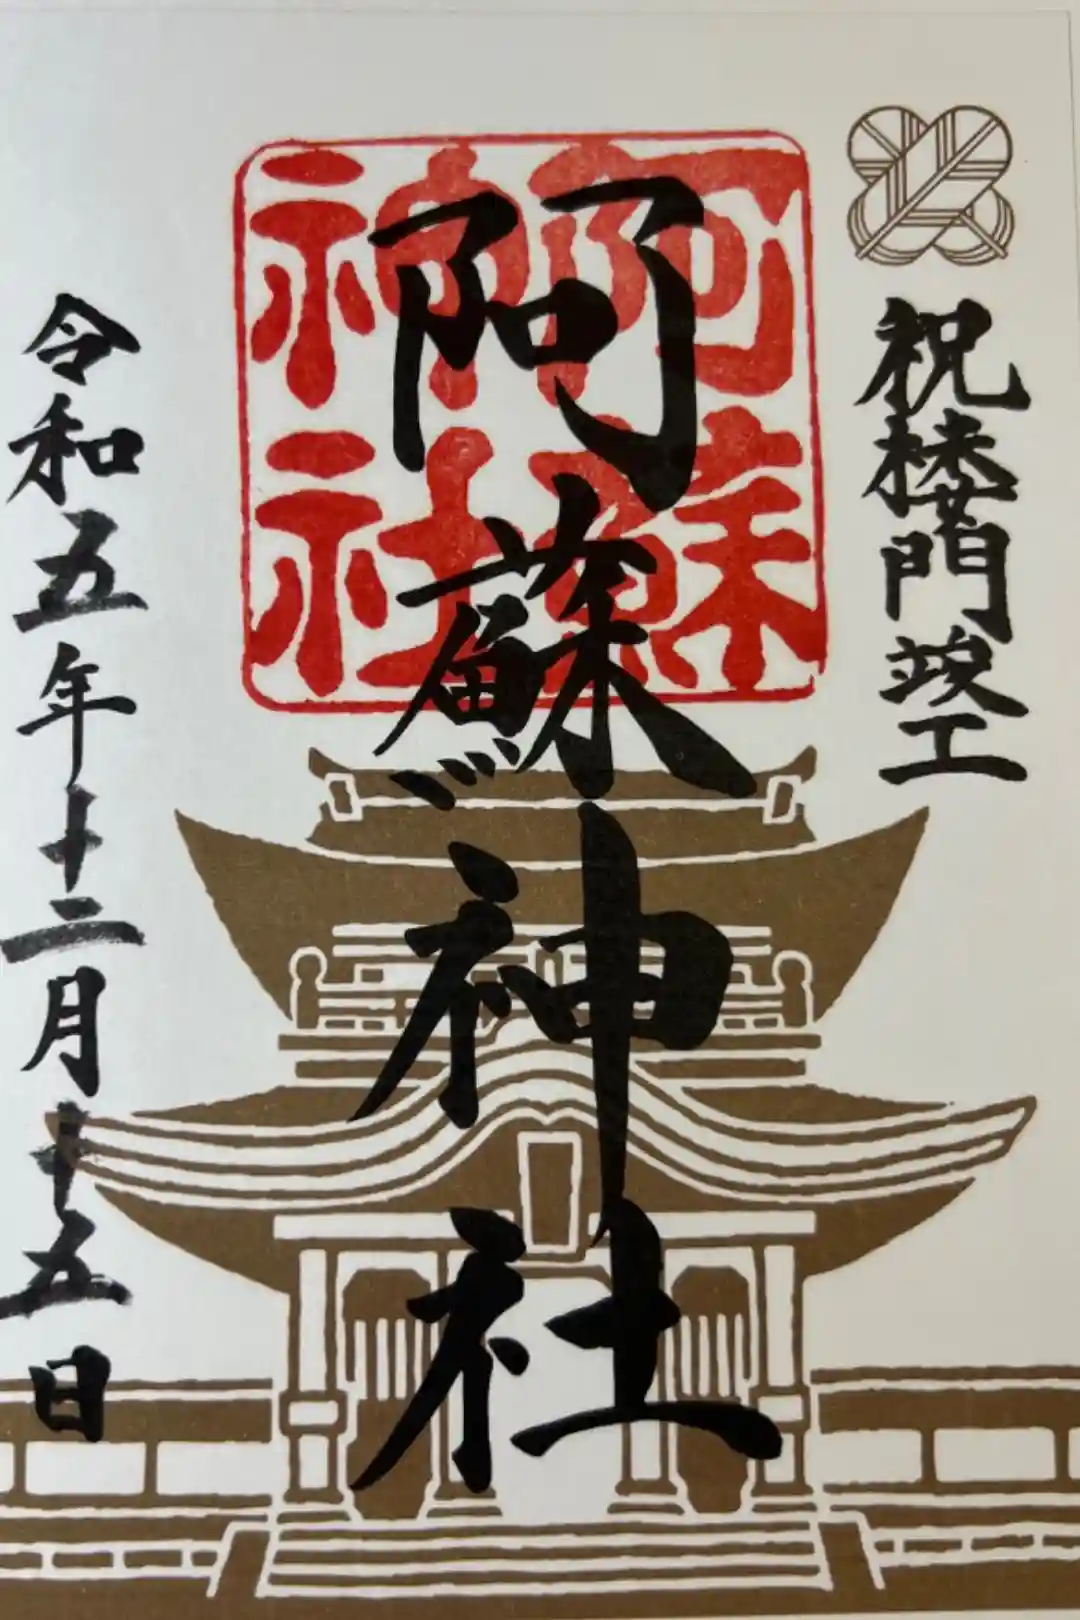 祝楼門竣工
阿蘇
神社
阿蘇神社
令和五年十二月十五日